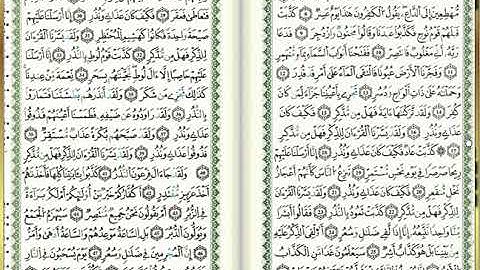 مُهْطِعِينَ إِلَى الدَّاعِ يَقُولُ الْكَافِرُونَ هَذَا يَوْمٌ عَسِرٌ ۝٨ كَذَّبَتْ
قَبْلَهُمْ قَوْمُ نُوحٍ فَكَذَّبُوا عَبْدَنَا وَقَالُوا مَجْنُونٌ وَازْدُجِرَ ۝٩ فَدَعَا
رَبَّهُ أَنِّي مَغْلُوبٌ فَانْتَصِرْ ۝١٠ فَفَتَحْنَا أَبْوَابَ السَّمَاءِ بِمَاءٍ مُنْهَمِرٍ
۝١١ وَفَجَّرْنَا الْأَرْضَ عُيُونًا فَالْتَقَى الْمَاءُ عَلَى أَمْرٍ قَدْ قُدِرَ ۝١٢
وَحَمَلْنَاهُ عَلَى ذَاتِ أَلْوَاحٍ وَدُسُرٍ ۝١٣ تَجْرِي بِأَعْيُنِنَا جَزَاءً لِمَنْ كَانَ
كُفِرَ ۝١٤ وَلَقَدْ تَرَكْنَاهَا آيَةً فَهَلْ مِنْ مُدَّكِرٍ ۝١٥ فَكَيْفَ كَانَ عَذَابِي
وَنُذُرِ ۝١٦ وَلَقَدْ يَسَّرْنَا الْقُرْآنَ لِلذِّكْرِ فَهَلْ مِنْ مُدَّكِرٍ
۝١٧ كَذَّبَتْ عَادٌ فَكَيْفَ كَانَ عَذَابِي وَنُذُرِ ۝١٨ إِنَّا أَرْسَلْنَا عَلَيْهِمْ
رِيحًا صَرْصَرًا فِي يَوْمِ نَحْسٍ مُسْتَمِرٍّ ۝١٩ تَنْزِعُ النَّاسَ كَأَنَّهُمْ أَعْجَازُ
نَخْلٍ مُنْقَعِرٍ ۝٢٠ فَكَيْفَ كَانَ عَذَابِي وَنُذُرِ ۝٢١ وَلَقَدْ يَسَّرْنَا الْقُرْآنَ
لِلذِّكْرِ فَهَلْ مِنْ مُدَّكِرٍ ۝٢٢ كَذَّبَتْ ثَمُودُ بِالنُّذُرِ ۝٢٣ فَقَالُوا أَبَشَرًا
مِنَّا وَاحِدًا نَتَّبِعُهُ إِنَّا إِذًا لَفِي ضَلَالٍ وَسُعُرٍ ۝٢٤ أَأُلْقِيَ الذِّكْرُ عَلَيْهِ
مِنْ بَيْنِنَا بَلْ هُوَ كَذَّابٌ أَشِرٌ ۝٢٥ سَيَعْلَمُونَ غَدًا مَنِ الْكَذَّابُ
فَتَعَاطَى فَعَقَرَ ۝٢٩ فَكَيْفَ كَانَ عَذَابِي وَنُذُرِ ۝٣٠ إِنَّا أَرْسَلْنَا عَلَيْهِمْ
صَيْحَةً وَاحِدَةً فَكَانُوا كَهَشِيمِ الْمُحْتَظِرِ ۝٣١ وَلَقَدْ يَسَّرْنَا الْقُرْآنَ
لِلذِّكْرِ فَهَلْ مِنْ مُدَّكِرٍ ۝٣٢ كَذَّبَتْ قَوْمُ لُوطٍ بِالنُّذُرِ ۝٣٣ إِنَّا أَرْسَلْنَا
عَلَيْهِمْ حَاصِبًا إِلَّا آلَ لُوطٍ نَجَّيْنَاهُمْ بِسَحَرٍ ۝٣٤ نِعْمَةً مِنْ عِنْدِنَا
كَذَلِكَ نَجْزِي مَنْ شَكَرَ ۝٣٥ وَلَقَدْ أَنْذَرَهُمْ بَطْشَتَنَا فَتَمَارَوْا
بِالنُّذُرِ ۝٣٦ وَلَقَدْ رَاوَدُوهُ عَنْ ضَيْفِهِ فَطَمَسْنَا أَعْيُنَهُمْ فَذُوقُوا
عَذَابِي وَنُذُرِ ۝٣٧ وَلَقَدْ صَبَّحَهُمْ بُكْرَةً عَذَابٌ مُسْتَقِرٌّ ۝٣٨
فَذُوقُوا عَذَابِي وَنُذُرِ ۝٣٩ وَلَقَدْ يَسَّرْنَا الْقُرْآنَ لِلذِّكْرِ فَهَلْ مِنْ مُدَّكِرٍ
۝٤٠ وَلَقَدْ جَاءَ آلَ فِرْعَوْنَ النُّذُرُ ۝٤١ كَذَّبُوا بِآيَاتِنَا كُلِّهَا فَأَخَذْنَاهُمْ
أَخْذَ عَزِيزٍ مُقْتَدِرٍ ۝٤٢ أَكُفَّارُكُمْ خَيْرٌ مِنْ أُولَئِكُمْ أَمْ لَكُمْ بَرَاءَةٌ
فِي الزُّبُرِ ۝٤٣ أَمْ يَقُولُونَ نَحْنُ جَمِيعٌ مُنْتَصِرٌ ۝٤٤ سَيُهْزَمُ الْجَمْعُ
وَيُوَلُّونَ الدُّبُرَ ۝٤٥ بَلِ السَّاعَةُ مَوْعِدُهُمْ وَالسَّاعَةُ أَدْهَى وَأَمَرُّ
۝٤٦ إِنَّ الْمُجْرِمِينَ فِي ضَلَالٍ وَسُعُرٍ ۝٤٧ يَوْمَ يُسْحَبُونَ فِي النَّارِ